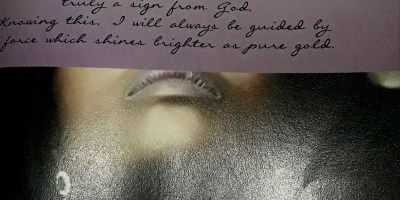 truly a sign from God.
Knowing this. I will always be guided by
force which shines brighter as pure gold.